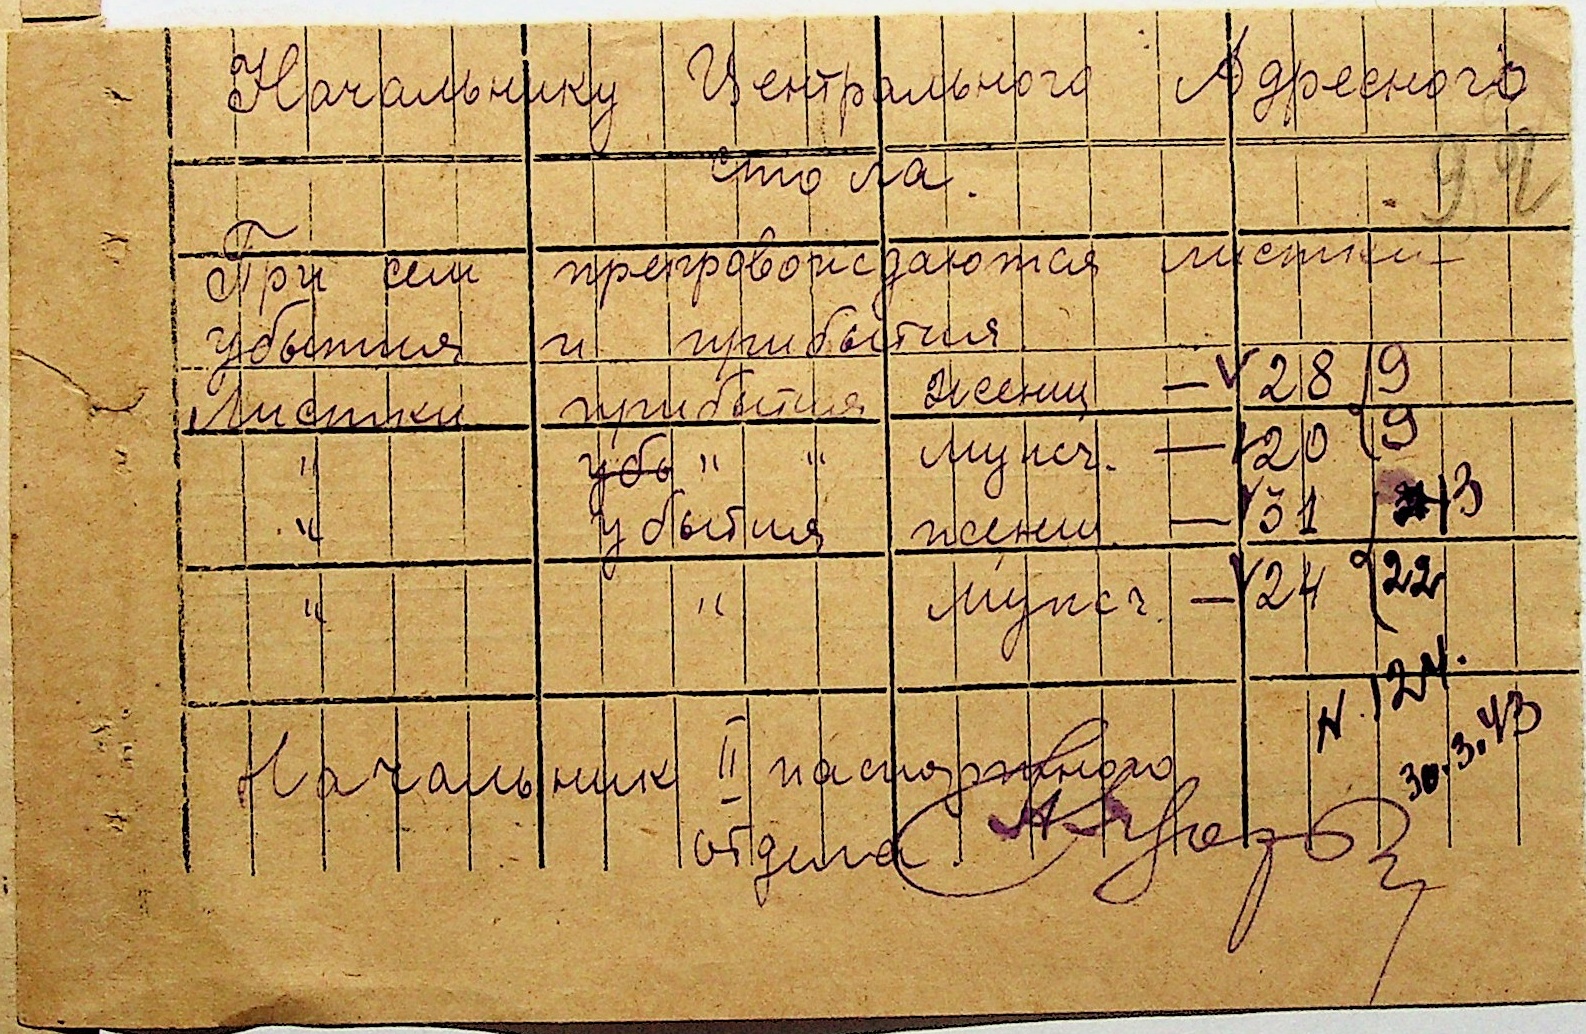 Начальнику Центрального Адресного
стола.
92
При сем препровождаются листки
убытия и прибытия
Листки прибытия женщ — √ 28 9
" убы " " мужч. — √ 20 9
" убытия женщ. — √ 31 13
" " мужч. — √ 24 22
н. 124.
30.3.43
Начальник II паспортного
отдела